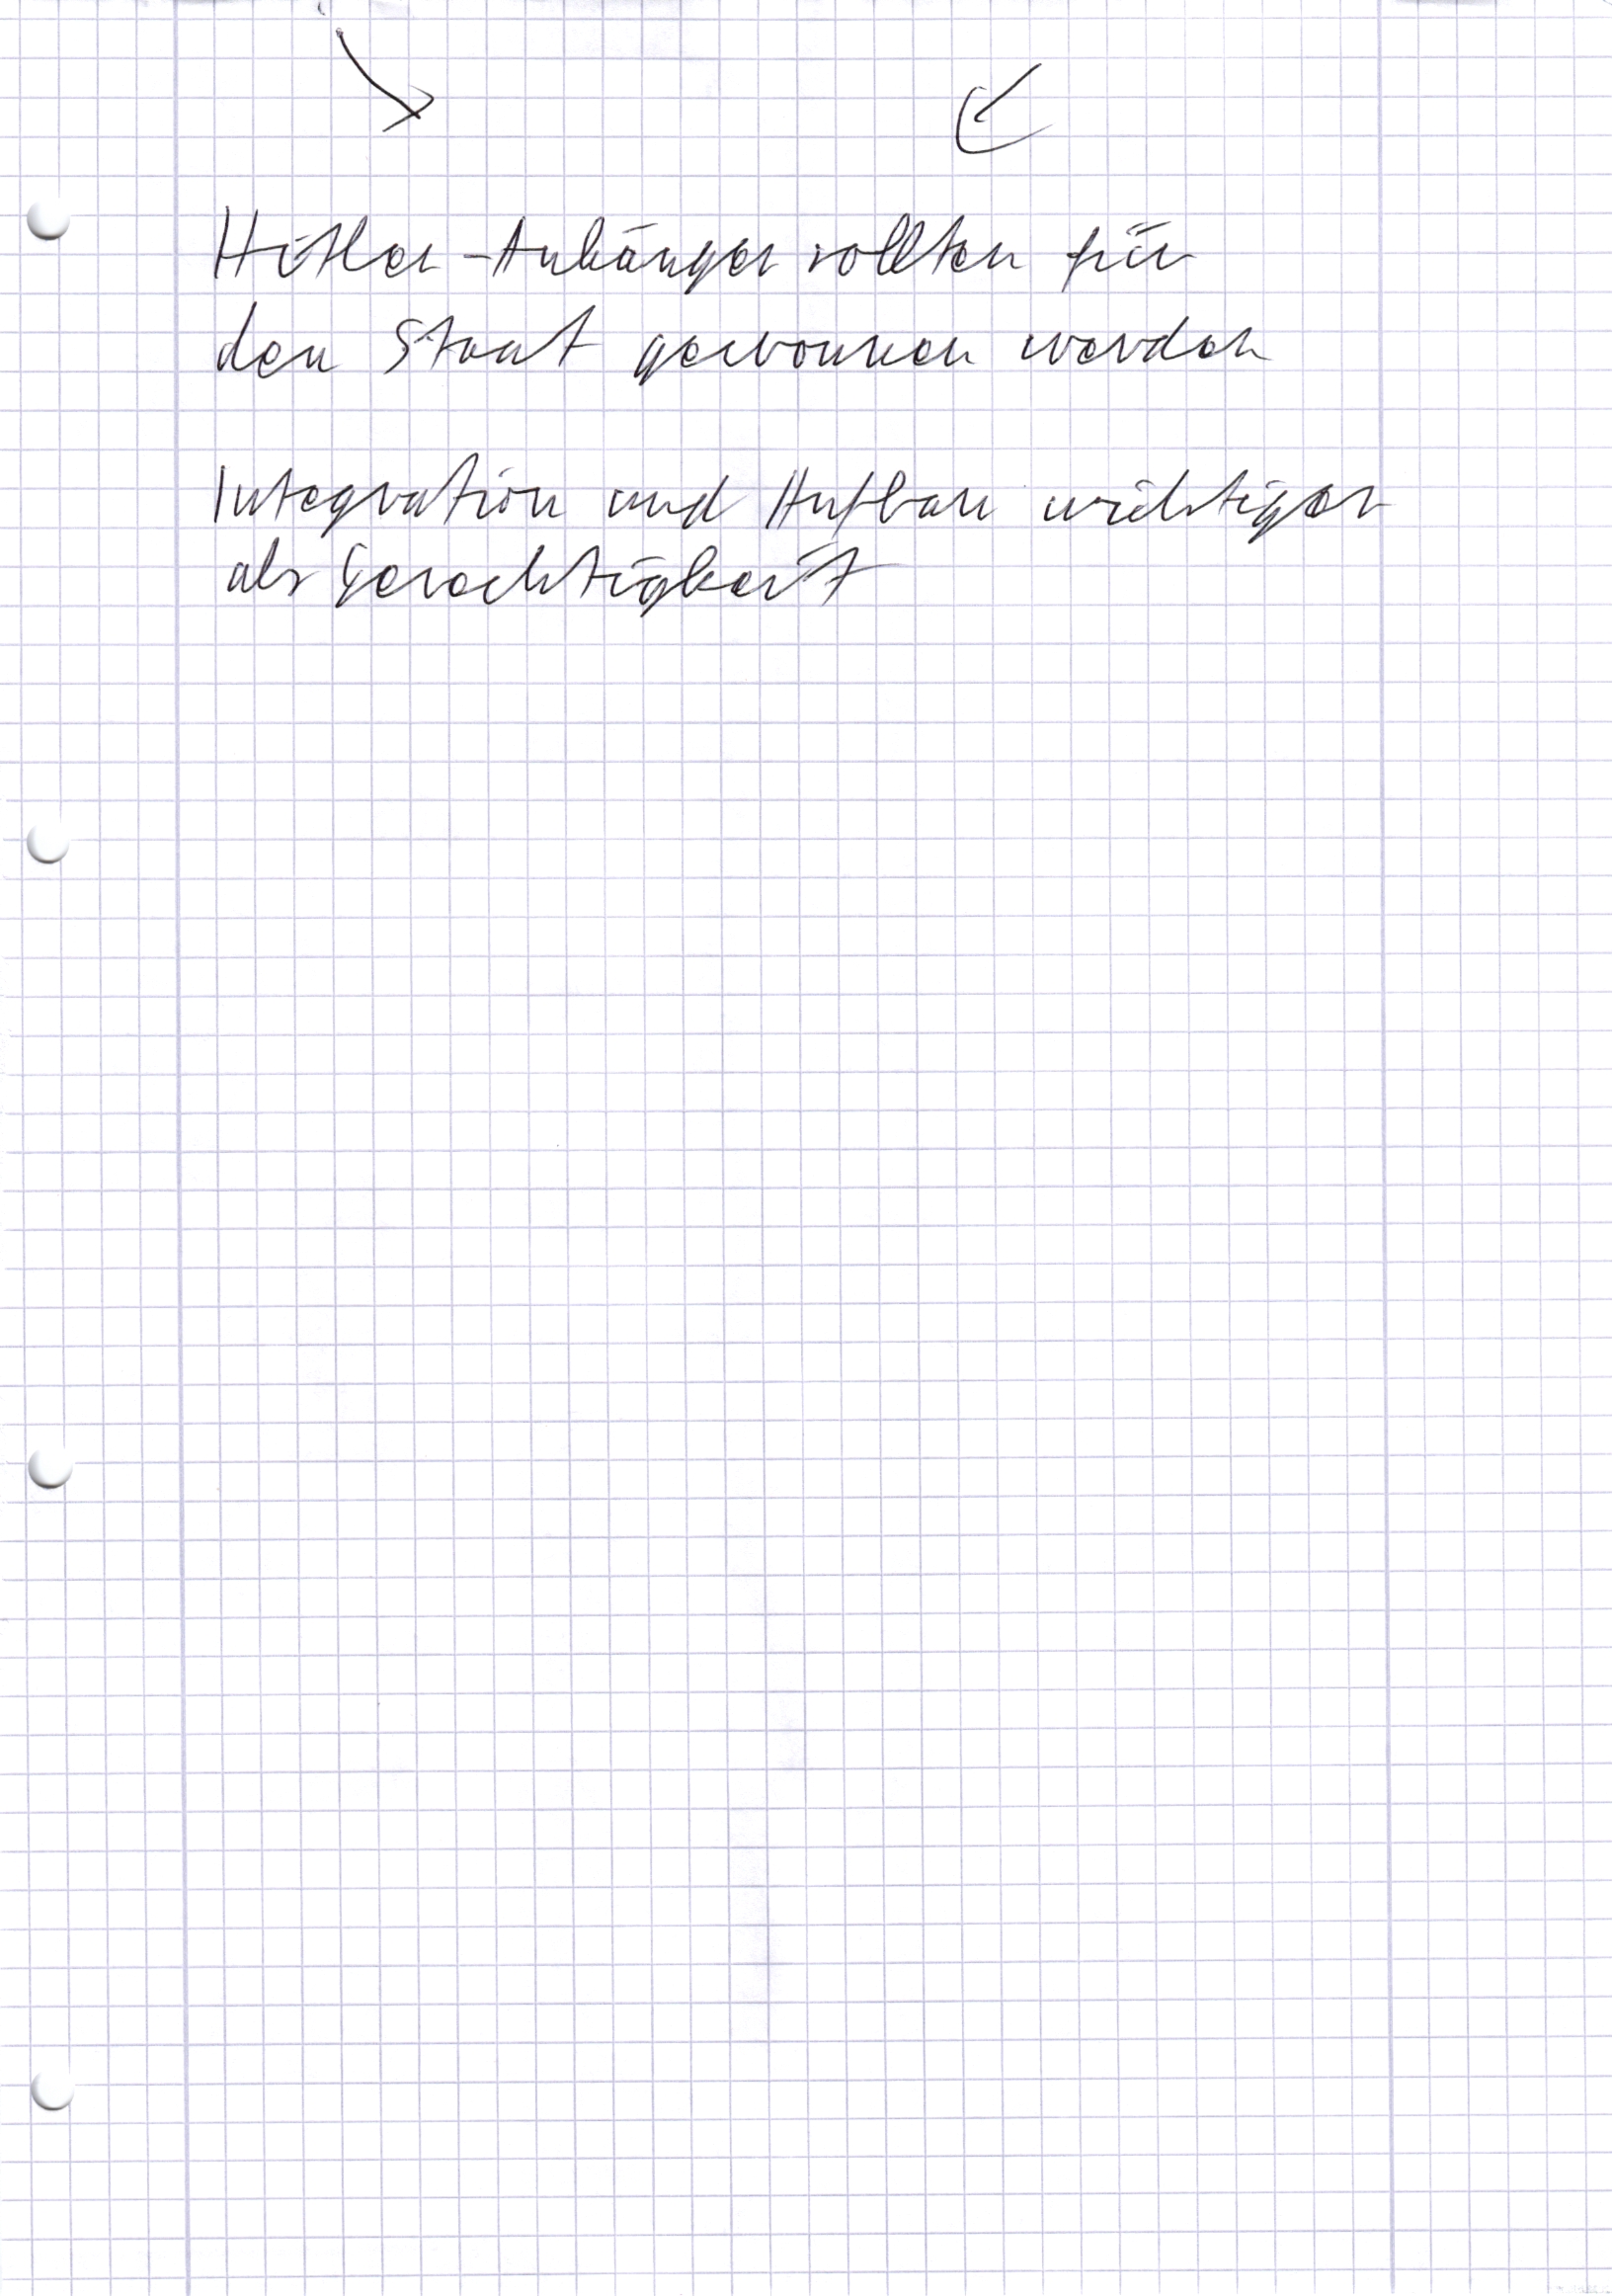 Hitler-Anhänger sollten für
den Staat gewonnen werden
Integration und Aufbau wichtiger
als Gerechtigkeit